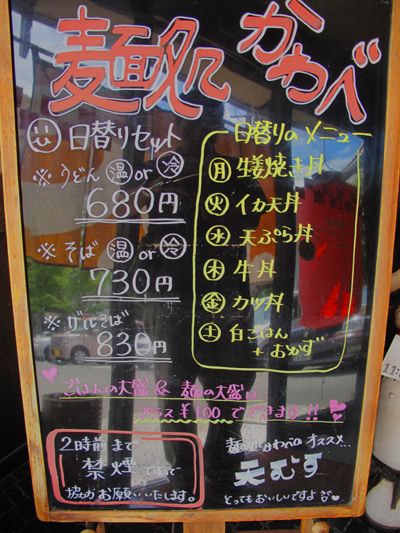 麺処 かわべ
日替りセット
※ うどん 温 or 冷
680円
※ そば 温 or 冷
730円
※ ザルそば
830円
日替りのメニュー
月 生姜焼き丼
火 イカ天丼
水 天ぷら丼
木 牛丼
金 カツ丼
土 白ごはん
+ おかず
ごはんの大盛 & 麺の大盛
プラス ¥100 でできます!!
2時前まで
禁煙ですので
協力お願いいたします。
麺処かわべのオススメ...
天むす
とってもおいしいですよ
11: